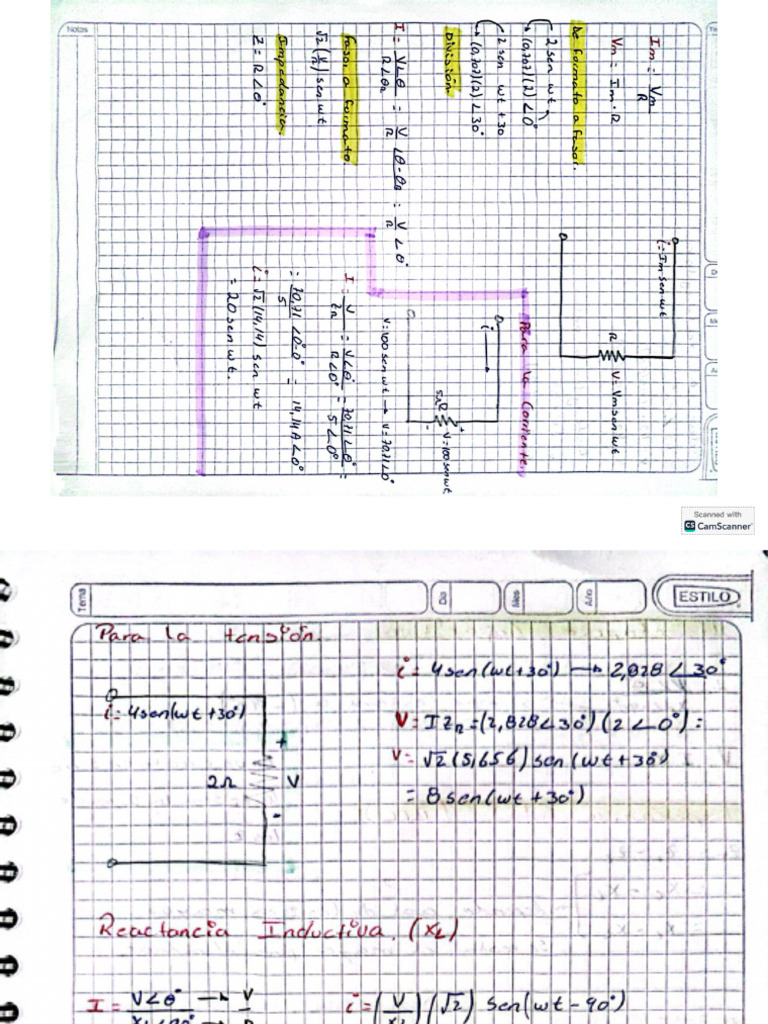 Im = Vm/R
Vm = Im · R
De formato a fasor.
2 sen wt
→ (0,707)(2) ∠0°
2 sen wt + 30
→ (0,707)(2) ∠30°
División
I = V∠θ / R∠θR = V/R ∠θ-θR = V/R ∠0°
Fasor a formato.
√2 (V/R) sen wt
Impedancia
Z = R∠0°
Notas
i = Im sen wt
R
V = Vm sen wt
Para la Corriente
i
5Ω R
+
-
V=100 sen wt
V=100 sen wt → V=70,71∠0°
I = V/ZR = V∠θ° / R∠0° = 70,71∠0° / 5∠0° =
= 70,71/5 ∠0°-0° = 14,14A∠0°
i = √2 (14,14) sen wt
= 20 sen wt.
Scanned with
CS CamScanner
Tema
Día
Mes
Año
ESTILO
Para la tensión.
i = 4 sen(wt+30°) → 2,828 ∠30°
i = 4sen(wt +30°)
V = I ZR = (2,828∠30°)(2∠0°) =
+
2Ω
V
-
V = √2 (5,656) sen (wt + 30°)
= 8 sen(wt +30°)
Reactancia Inductiva. (XL)
I = V∠θ° → V
i = (V/XL) (√2) sen(wt - 90°)